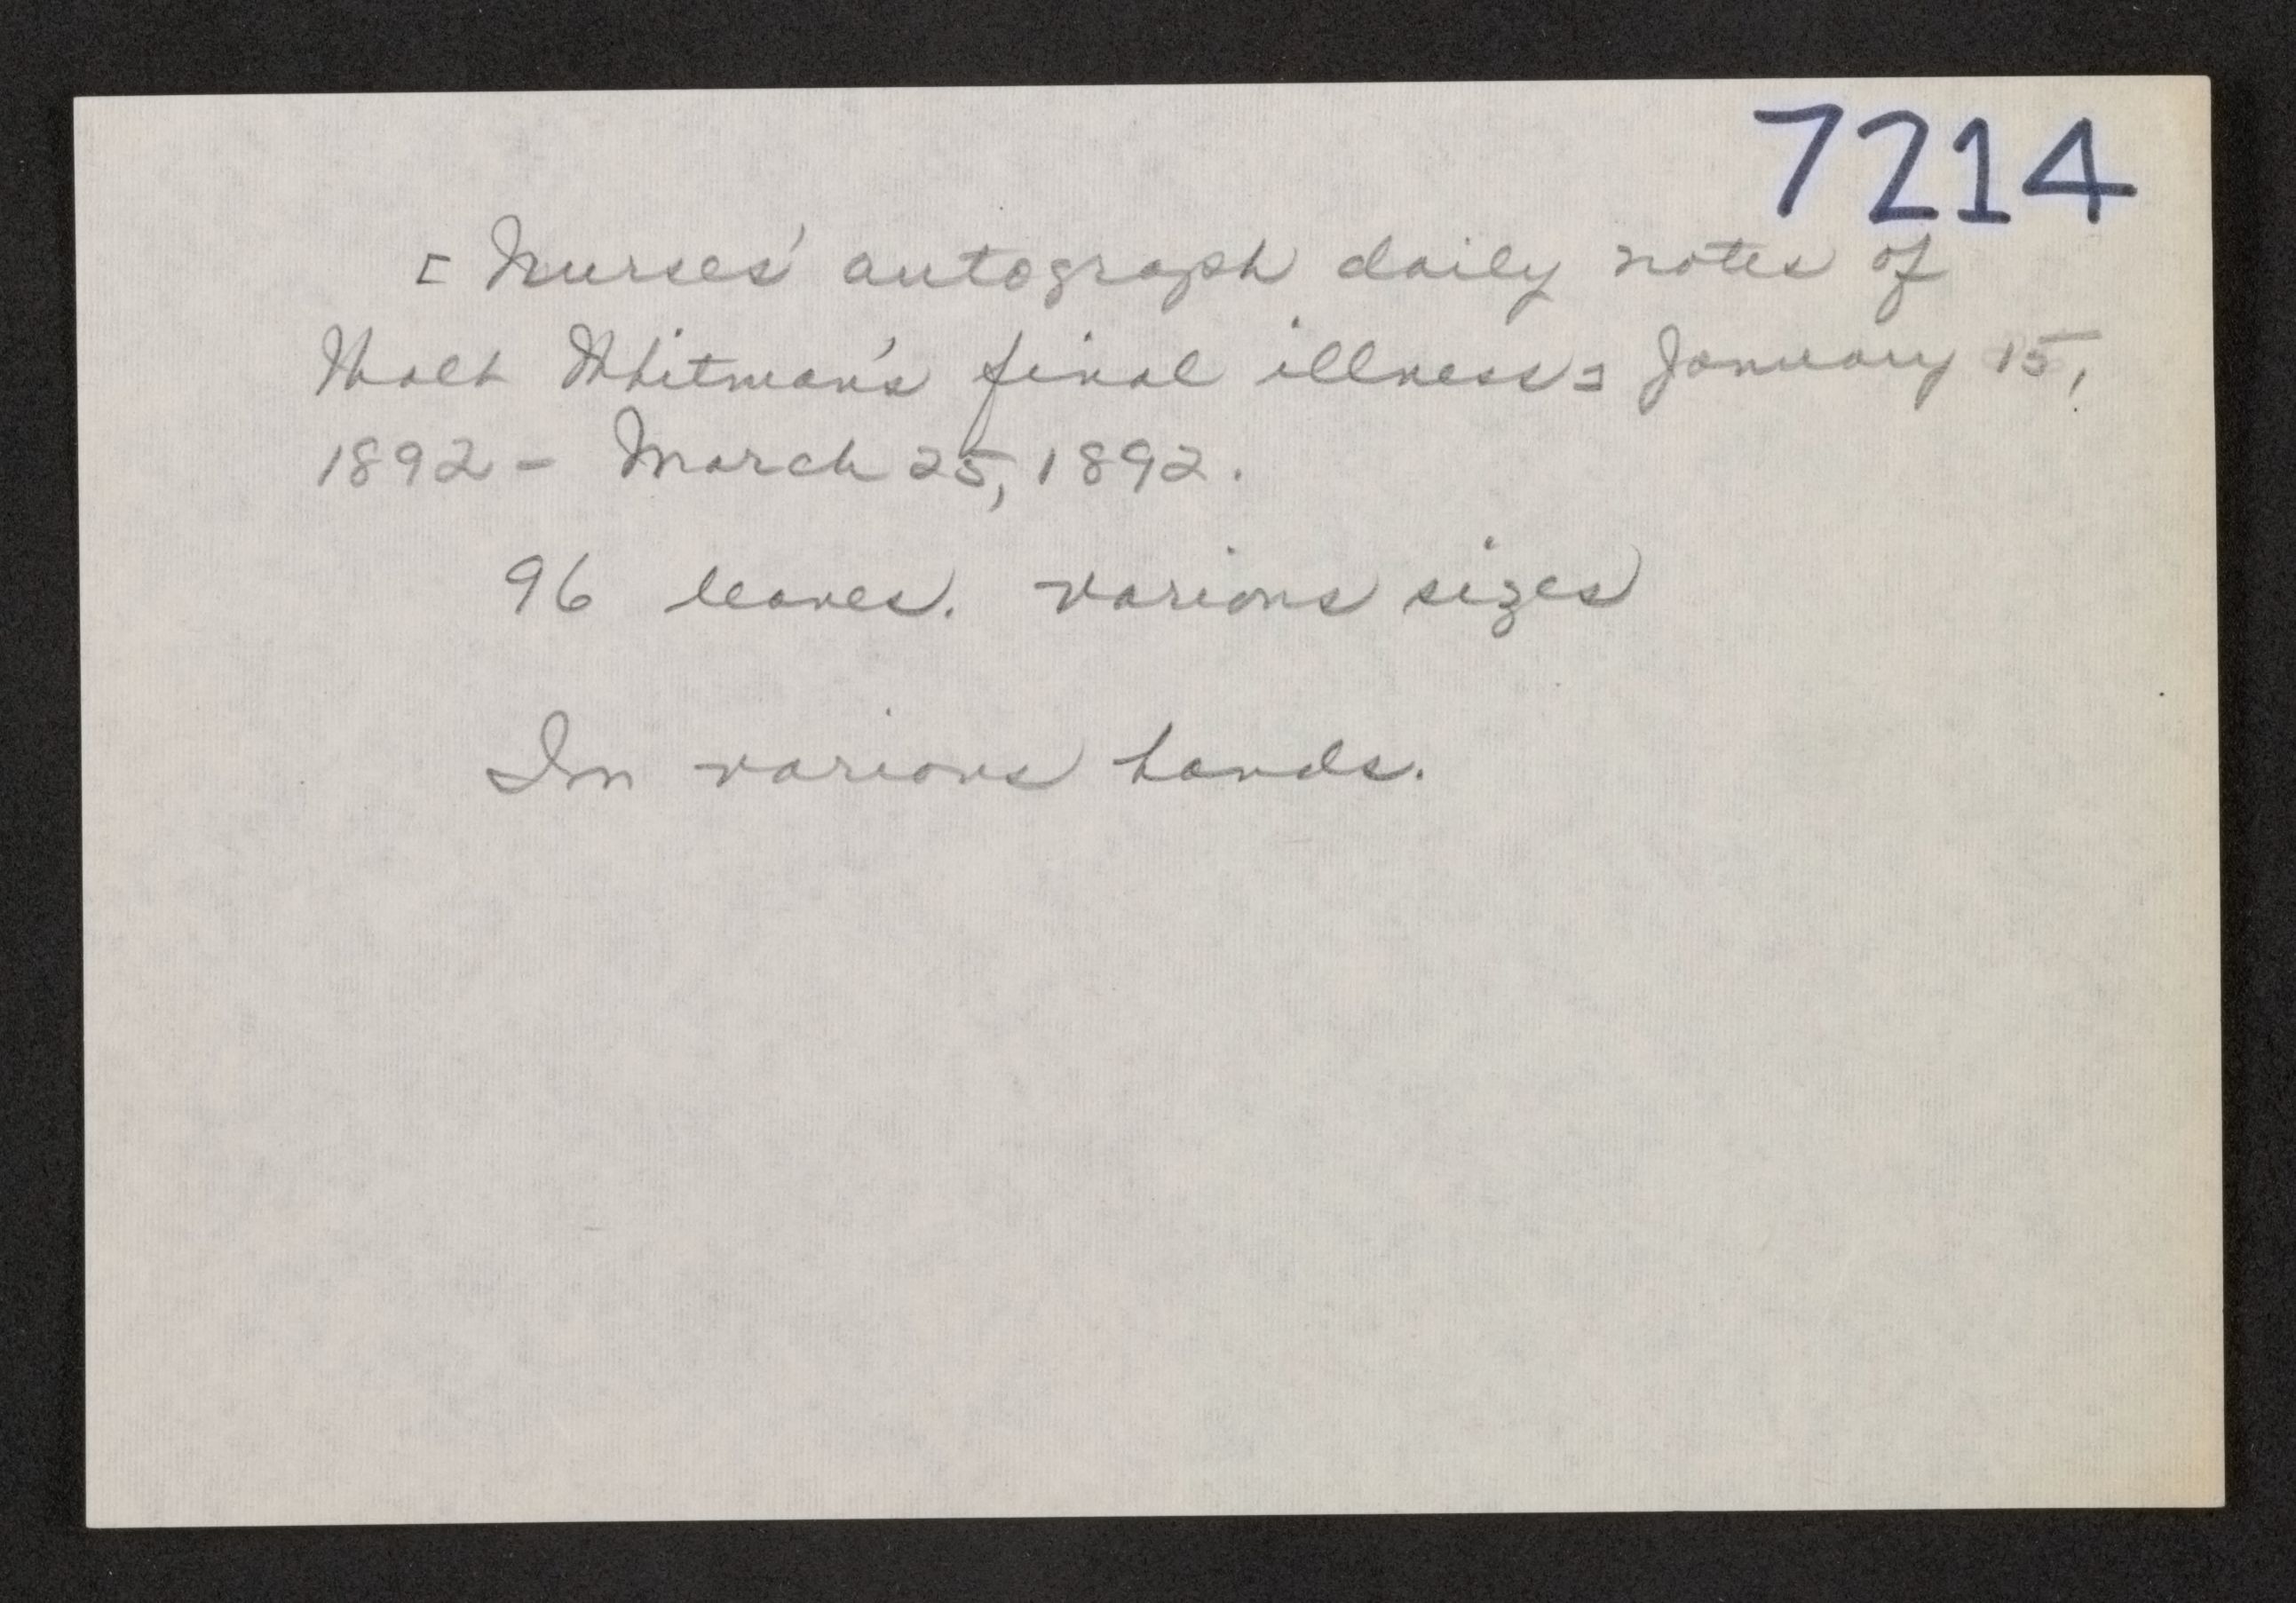 7214
[Nurses' autograph daily notes of
Walt Whitman's final illness] January 15,
1892 - March 25, 1892.
96 leaves. various sizes
In various hands.